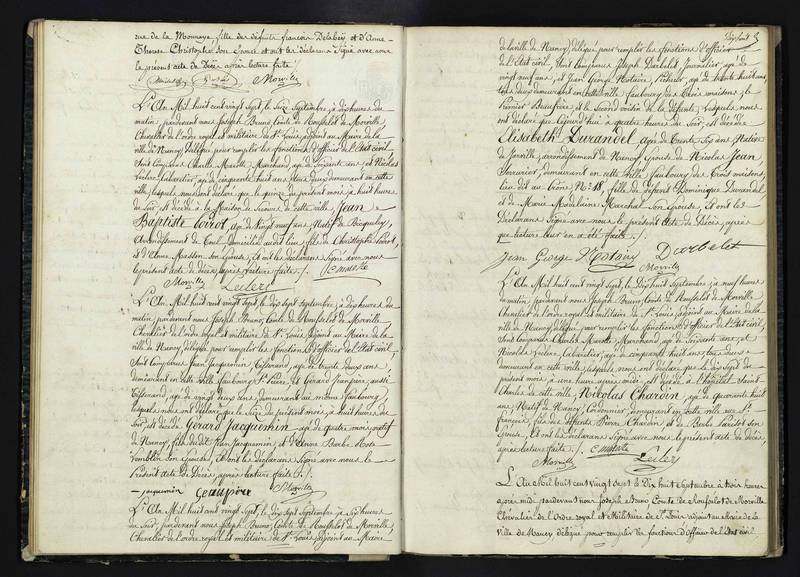 rue de la Monnaye, fille des défunts françois Delabeÿ et d'Anne
Therese Christophe son Epouse et ont les déclarans Signé avec nous
le présent acte de Décès après lecture faite
Morville
L'An Mil huit cent vingt Sept, le Seize Septembre, à dix heures du
matin, pardevant nous Joseph Bruno Comte de Rousselot de Morville,
Chevalier de l'ordre royal et militaire de St Louis, adjoint au Maire de la
ville de Nancy, délégué pour remplir les fonctions d'officier de l'Etat civil,
Sont Comparus Charles Marotte, Marchand, agé de Soixante ans, et Nicolas
Leclerc, Cabaretier, agé de cinquante huit ans, tous deux demeurant en cette
ville, lesquels nous ont déclaré que le quinze du présent mois, à huit heures
du Soir, est décédé à la Maison de Secours de cette ville Jean
Baptiste Poirot, agé de Vingt neuf ans, Natif de Bicqueley,
Arrondissement de Toul, domicilié audit lieu, fils de Christophe Poirot,
et d'Anne Masson Son Epouse, et ont les déclarans Signé avec nous
le présent acte de décès, après lecture faite ./.
C marotte
Morville Leclerc
L'An Mil huit cent vingt Sept, le dix Sept Septembre, à dix heures du
matin, pardevant nous Joseph Bruno, Comte de Rousselot de Morville,
Chevalier de l'ordre royal et militaire de St Louis, adjoint au Maire de la
ville de Nancy, délégué pour remplir les fonctions d'officier de l'Etat civil,
Sont Comparus Jean Jacquemin, Tisserand, agé de trente deux ans,
demeurant en cette ville, faubourg St Pierre, et Gérard Jeanpierre, aussi
Tisserand, agé de vingt deux ans, demeurant au même faubourg,
lesquels nous ont déclaré que le Seize du présent mois, à huit heures du
Soir, est décédé Gerard Jacquemin agé de quatre mois, natif
de Nancy, fils dudit Jean Jacquemin, et d'Anne Barbe
Son Epouse, Et ont les déclarans Signé avec nous le
Présent acte de Décès, après lecture faite ./.
Morville
jacquemin
L'An Mil huit cent vingt Sept, le dix Sept Septembre à Six heures
du Soir, pardevant nous Joseph Bruno, Comte de Rousselot de Morville,
Chevalier de l'ordre royal et militaire de St Louis, adjoint au Maire
de la ville de Nancy, délégué pour remplir les fonctions d'officier
de l'Etat civil, Sont Comparus Joseph Darbelet, Journalier, agé de
vingt neuf ans, et Jean George Notaire, Pêcheur, agé de trente huit ans,
tous deux demeurant en cette ville faubourg des Trois maisons, le
Premier Beaufrère, et le Second voisin de la défunte, lesquels nous
ont déclaré que Cejourd'hui à quatre heures du Soir, est décédée
Elisabeth Durandel, agée de Trente Six ans, Native
de Jarville, arrondissement de Nancy, Epouse de Nicolas Jean,
Serrurier, demeurant en cette ville, faubourg des Trois maisons,
lieu dit au Crône No 18, fille de défunt Dominique Durandel
et de Marie Madelaine Marechal Son Epouse, Et ont les
Déclarans Signé avec nous le présent acte de Décès, après
que lecture leur en a été faite ./.
jean George Notaire Darbelet
Morville
L'An Mil huit cent vingt Sept, le dix huit Septembre, à neuf heures
du matin, pardevant nous Joseph Bruno, Comte de Rousselot de Morville,
Chevalier de l'ordre royal et militaire de St Louis, adjoint au Maire de la
ville de Nancy, délégué pour remplir les fonctions d'officier de l'Etat civil,
Sont Comparus Charles Marotte, Marchand, agé de Soixante ans, et
Nicolas Leclerc, Cabaretier, agé de cinquante huit ans, tous deux
demeurant en cette ville, lesquels nous ont déclaré que le dix Sept du
présent mois, à une heure après midi, est décédé à l'hôpital Saint
Charles de cette ville, Nicolas Chardin, agé de quarante huit
ans, Natif de Nancy, Cordonnier, demeurant en cette ville rue St
François, fils des défunts Pierre Chardin, et de Barbe Son
Epouse, Et ont les déclarans Signé avec nous le présent acte de Décès,
après lecture faite ./.
C marotte
Morville Leclerc
L'An Mil huit cent Vingt Sept le Dix huit Septembre à trois heures
après midi pardevant nous Joseph Bruno Comte de Rousselot de Morville
Chevalier de l'Ordre royal et Militaire de St Louis adjoint au Maire de la
Ville de Nancy délégué pour remplir les fonctions d'Officier de l'Etat civil